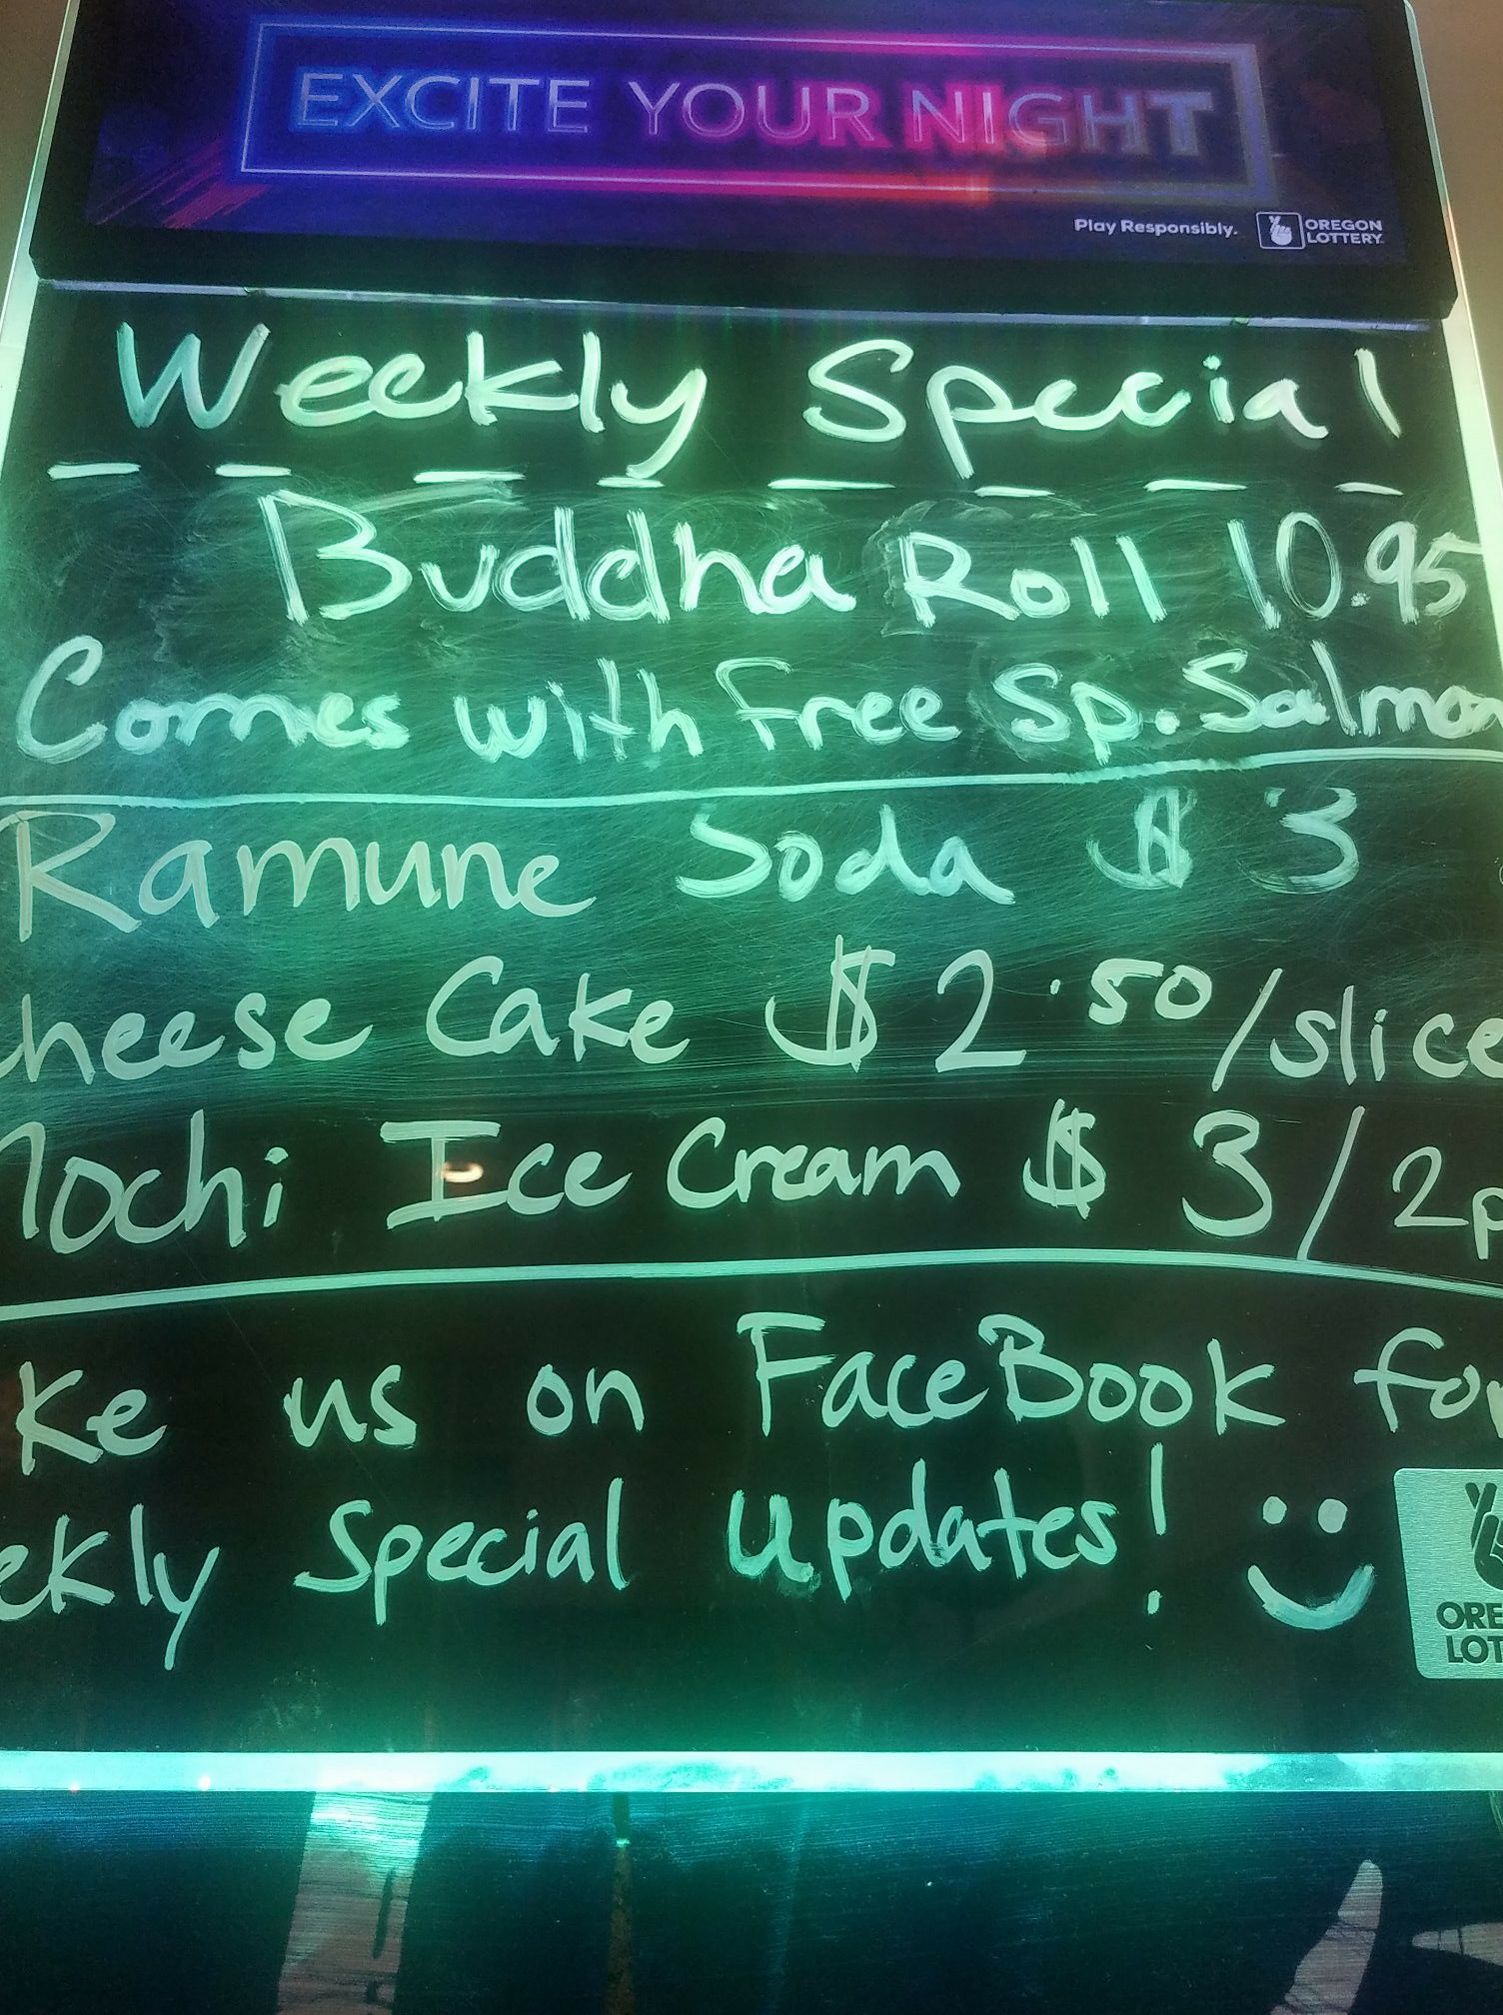 EXCITE YOUR NIGHT
Play Responsibly. OREGON LOTTERY
Weekly Special
Buddha Roll 10.95
Comes with Free Sp. Salmon
Ramune Soda $3
heese Cake $2.50/slice
Mochi Ice Cream $3/2p
ke us on FaceBook for
ekly Special Updates!
ORE
LOT